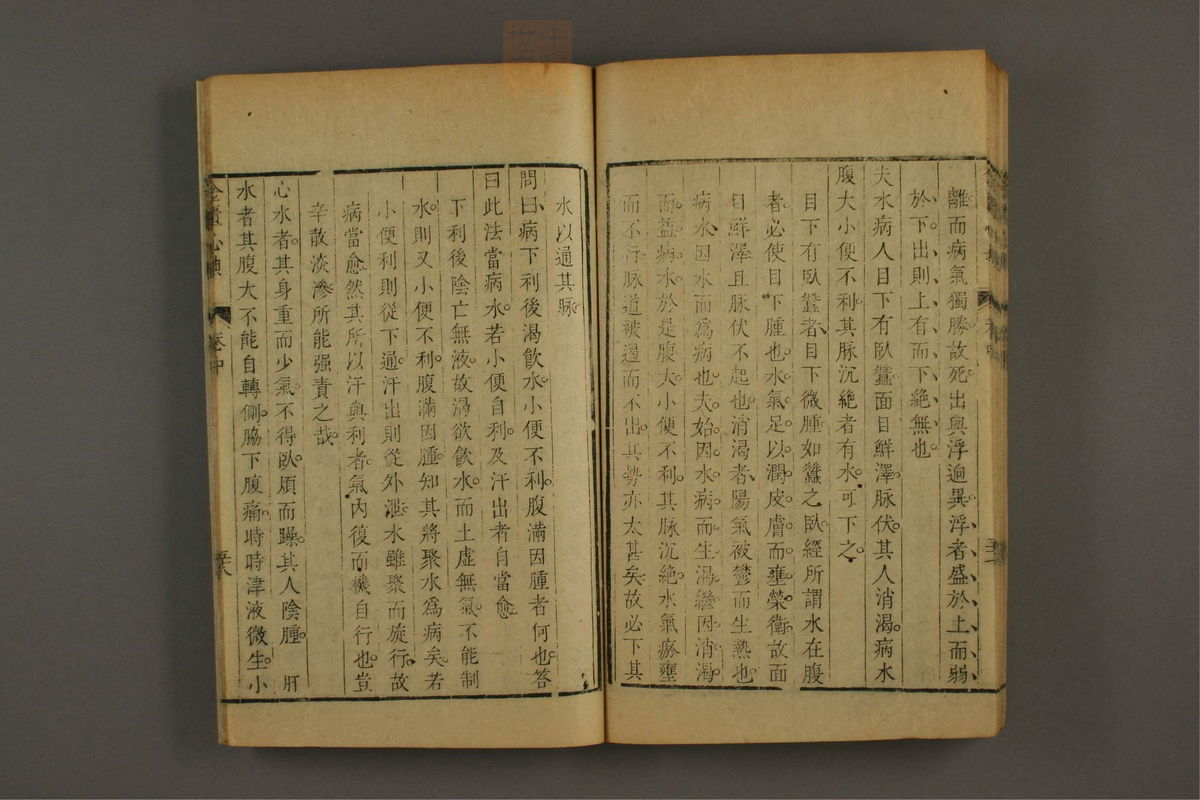 離而病氣獨勝故死出與浮逈異浮者盛於上而弱
於下出則上有而下絕無也
夫水病人目下有臥蠶面目鮮澤脈伏其人消渴病水
腹大小便不利其脈沉絕者有水可下之
目下有臥蠶者目下微腫如蠶之臥經所謂水在腹
者必使目下腫也水氣足以潤皮膚而壅榮衛故面
目鮮澤且脈伏不起也消渴者陽氣被鬱而生熱也
病水因水而爲病也夫始因水病而生渴繼因消渴
而益病水於是腹大小便不利其脈沉絕水氣瘀壅
而不行脈道被遏而不出其勢亦太甚矣故必下其
水以通其脈
問曰病下利後渴飲水小便不利腹滿因腫者何也答
曰此法當病水若小便自利及汗出者自當愈
下利後陰亡無液故渴欲飲水而土虛無氣不能制
水則又小便不利腹滿因腫知其將聚水爲病矣若
小便利則從下通汗出則從外泄水雖聚而旋行故
病當愈然其所以汗與利者氣內復而機自行也豈
辛散淡滲所能强責之哉
心水者其身重而少氣不得臥煩而躁其人陰腫 肝
水者其腹大不能自轉側脇下腹痛時時津液微生小
金匱心典 卷中